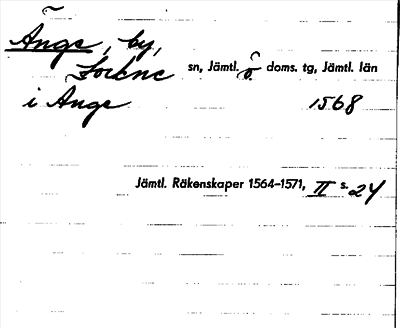 Ånge, by,
Lockne sn, Jämtl. ö doms. tg, Jämtl. län
i Ange 1568
Jämtl. Räkenskaper 1564-1571, II s. 24